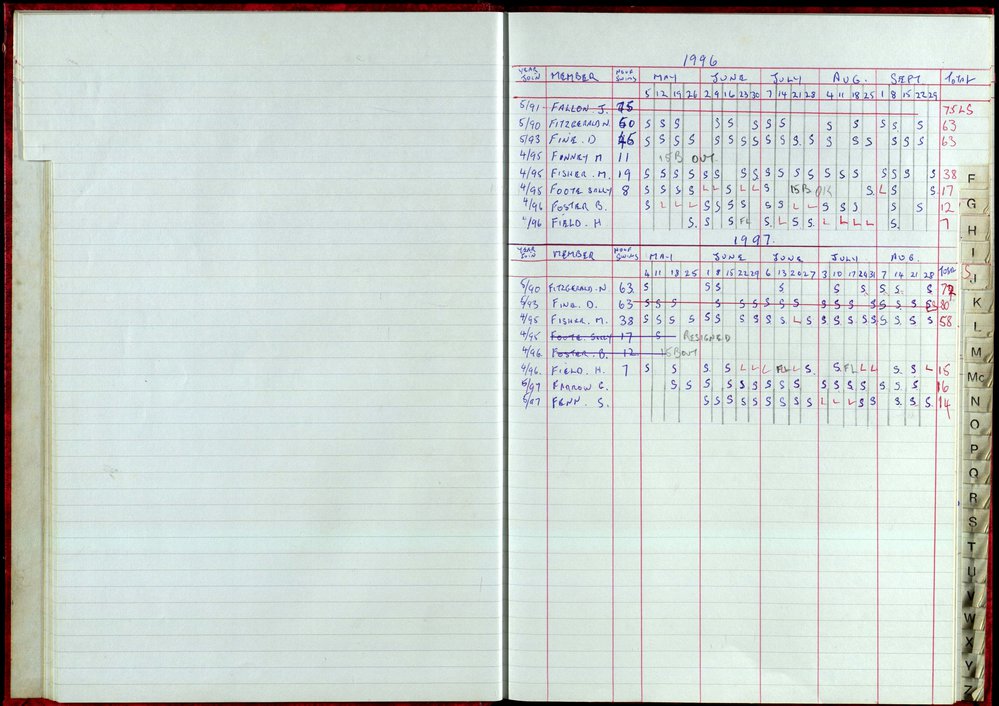 1996
YEAR JOIN MEMBER HOUR SWIMS MAY JUNE JULY AUG. SEPT. TOTAL
5 12 19 26 2 9 16 23 30 7 14 21 28 4 11 18 25 1 8 15 22 29
5/91 FALLON J. 75 75 LS
5/90 FITZGERALD N 50 S S S S S S S S S S S S S S 63
5/93 FINE. D 46 S S S S S S S S S S S S S S S S S 63
4/95 FINNEY M 11 15 B OUT
4/95 FISHER. M. 19 S S S S S S S S S S S S S S S S S S S 38
4/95 FOOTE SALLY 8 S S S S L L S L L S 15B S L S S 17
4/96 FOSTER B. S L L L S S S S S S L L S S S S S 12
4/96 FIELD. H S. S S S FL S L S S L L L L S. 7
1997
YEAR JOIN MEMBER HOUR SWIMS MAY JUNE JUNE JULY AUG. TOTAL
4 11 18 25 1 8 15 22 29 6 13 20 27 3 10 17 24 31 7 14 21 28
5/90 FITZGERALD. N 63. S S S S S S S S S
5/93 FINE. D. 63 S S S S S S S S S S S S S S S S S 80
4/95 FISHER. M. 38 S S S S S S S S S S L S S S S S S S S S S 58
4/95 FOOTE SALLY 17 S RESIGNED
4/96 FOSTER. B. 12 15 B OUT
4/96. FIELD. H. 7 S S S. S L L L FL L S. S. FL L L S S L 15
5/97 FARROW G. S S S S S S S S S S S S S S S S 16
5/97 FENN. S. S S S S S S S S S L L L S S S S S. 14
F
G
H
I
J
K
L
M
Mc
N
O
P
Q
R
S
T
U
V
W
X
Y
Z